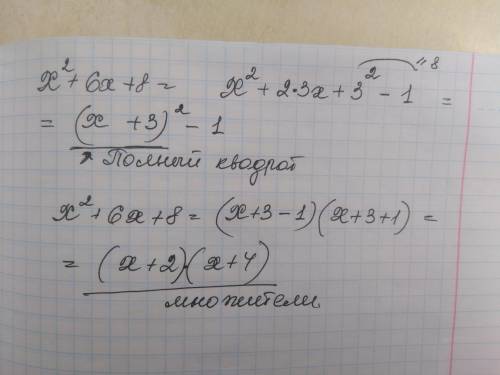 x² + 6x + 8 = x² + 2·3x + 3² - 1 =
"8
= (x + 3)² - 1
Полный квадрат
x² + 6x + 8 = (x+3-1)(x+3+1) =
= (x+2)(x+4)
множители